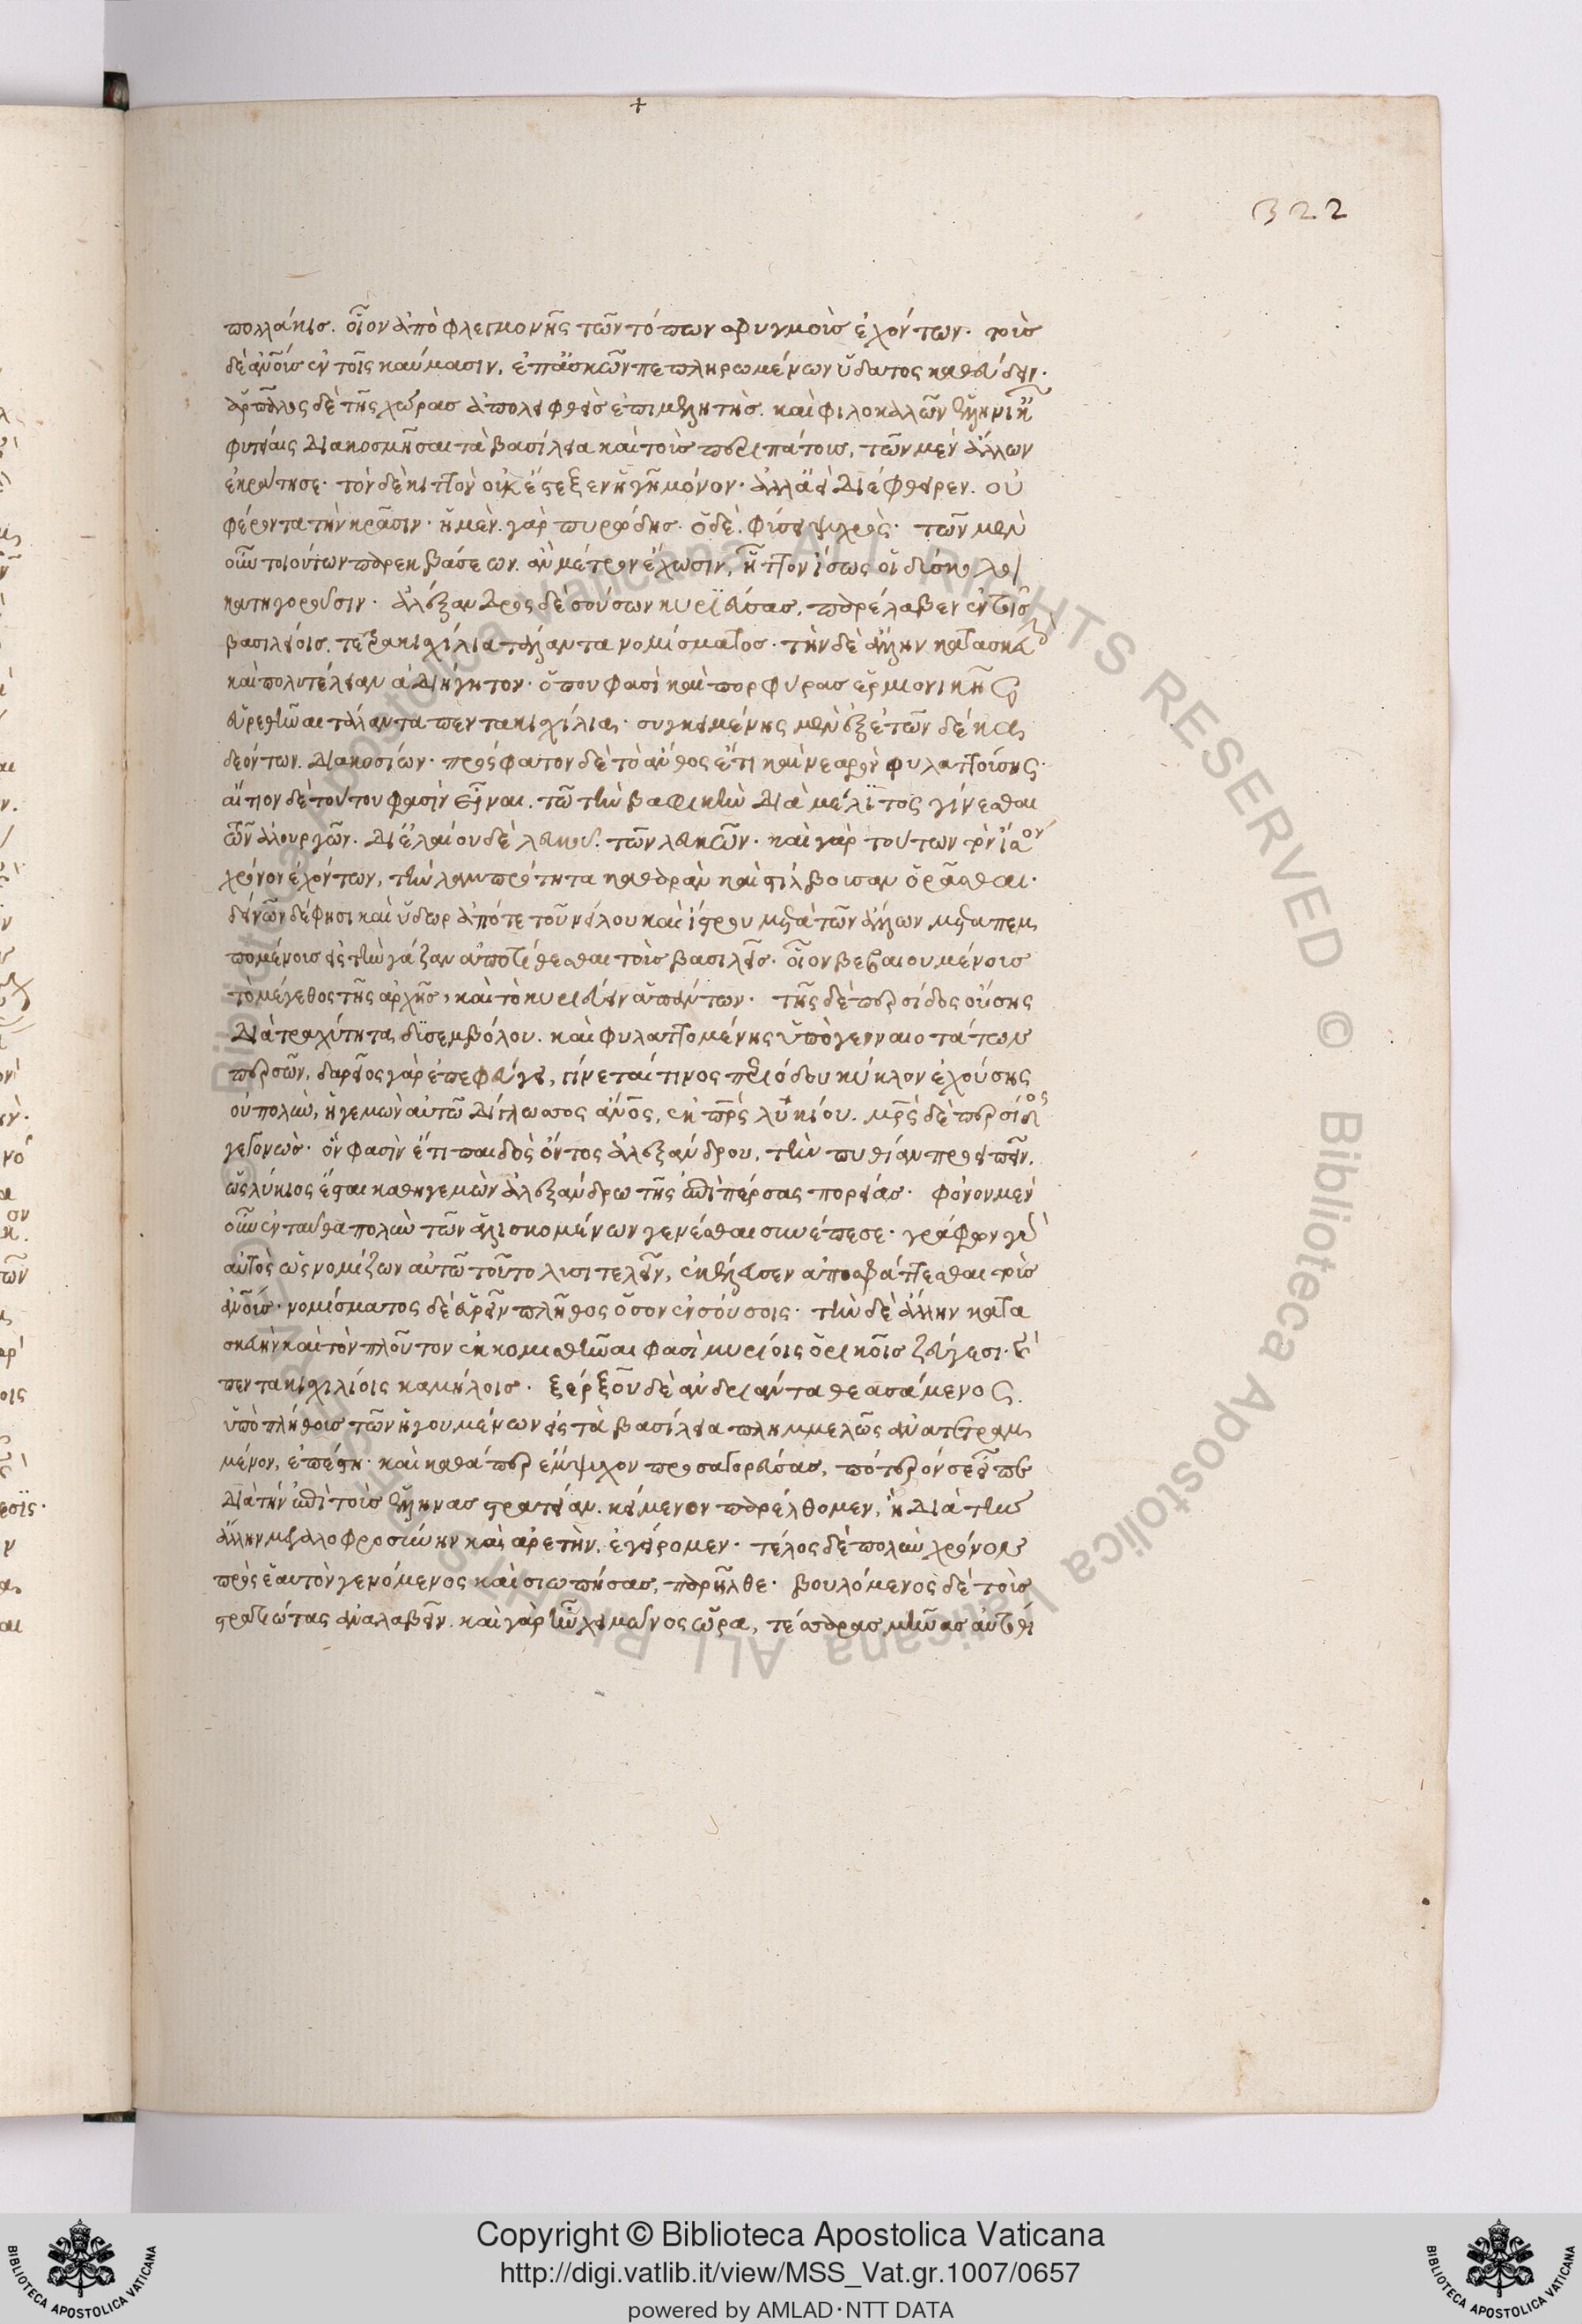 322
πολλάκις. οἷον ἀπὸ φλεγμονῆς τῶν τόπων σφυγμοὺς ἐχόντων. τοὺς
δὲ ἀνοὺς ἐν τοῖς καύμασιν, ἐπ' ἀσκῶν πεπληρωμένων ὕδατος καθεύδειν.
ἅρπαλος δὲ τῆς χώρας ἀπολειφθεὶς ἐπιμελητὴς. καὶ φιλοκαλῶν ἑλληνικαῖς
φυτείαις διακοσμῆσαι τὰ βασίλεια καὶ τοὺς περιπάτους, τῶν μὲν ἄλλων
ἐκράτησε. τὸν δὲ κιττὸν οὐκ ἔστεξεν ἡ γῆ μόνον. ἀλλ' ἀεὶ διέφθειρεν. οὐ
φέροντα τὴν κρᾶσιν. ἡ μὲν γὰρ πυρώδης. ὁ δὲ φιλόψυχρος. τῶν μὲν
οὖν τοιούτων παρεκβάσεων. ἂν μέτρον ἔχωσιν, ἧττον ἴσως οἱ δύσκολοι
κατηγοροῦσιν. ἀλέξανδρος δὲ σούσων κυριεύσας, παρέλαβεν ἐν τοῖς
βασιλείοις. τετρακισχίλια τάλαντα νομίσματος. τὴν δὲ ἄλλην κατασκευὴν
καὶ πολυτέλειαν ἀδιήγητον. ὅπου φασὶ καὶ πορφύρας ἑρμιονικῆς
εὑρεθῆναι τάλαντα πεντακισχίλια. συγκειμένης μὲν ἐξ ἐτῶν δέκα
δεόντων. διακοσίων. πρόσφατον δὲ τὸ ἄνθος ἔτι καὶ νεαρὸν φυλαττούσης.
αἴτιον δὲ τούτου φασὶν εἶναι. τῶ τὴν βαφικὴν διὰ μέλιτος γίνεσθαι
τῶν ἁλουργῶν. δι' ἐλαίου δὲ λευκοῦ. τῶν λευκῶν. καὶ γὰρ τούτων τὸν ἴσον
χρόνον ἐχόντων, τὴν λαμπρότητα καθαρὰν καὶ στίλβουσαν ὁρᾶσθαι.
δείνων δέ φησι καὶ ὕδωρ ἀπό τε τοῦ νείλου καὶ ἴστρου μετὰ τῶν ἄλλων μεταπεμ
πομένους εἰς τὴν γάζαν ἀποτίθεσθαι τοὺς βασιλεῖς. οἷον βεβαιουμένους
τὸ μέγεθος τῆς ἀρχῆς, καὶ τὸ κυριεύειν ἁπάντων. τῆς δὲ περσίδος οὔσης
διὰ τραχύτητα δυσεμβόλου. καὶ φυλαττομένης ὑπὸ γενναιοτάτων
περσῶν, δαρεῖος γὰρ ἐπεφεύγει, γίνεταί τινος περιόδου κύκλον ἐχούσης
οὐ πολὺν, ἡγεμὼν αὐτῶ δίγλωσσος ἄνος, ἐκ πρς λυκίου. μρς δὲ περσίδος
γεγονὼς. ὅν φασὶν ἔτι παιδὸς ὄντος ἀλεξάνδρου, τὴν πυθίαν προειπεῖν.
ὡς λύκιος ἔσται καθηγεμὼν ἀλεξάνδρω τῆς ἐπὶ πέρσας πορείας. φόνον μὲν
οὖν ἐνταῦθα πολὺν τῶν ἁλισκομένων γενέσθαι συνέπεσε. γράφειν γὰρ
αὐτὸς ὡς νομίζων αὐτῶ τοῦτο λυσιτελεῖν, ἐκέλευσεν ἀποσφάττεσθαι τοὺς
ἀνοὺς. νομίσματος δὲ εὑρεῖν πλῆθος ὅσον ἐν σούσοις. τὴν δὲ ἄλλην κατα
σκευὴν καὶ τὸν πλοῦτον ἐκκομισθῆναι φασὶ μυρίοις ὀρικοῖς ζεύγεσι. καὶ
πεντακισχιλίοις καμήλοις. ξέρξου δὲ ἀνδριάντα θεασάμενος
ὑπὸ πλήθους τῶν ἠγουμένων εἰς τὰ βασίλεια πλημμελῶς ἀνατετραμ
μένον, ἐπέστη. καὶ καθάπερ ἔμψυχον προσαγορεύσας, πότερόν σε εἶπε
διὰ τὴν ἐπὶ τοὺς ἕλληνας στρατείαν. κείμενον παρέλθομεν, ἢ διὰ τὴν
ἄλλην μεγαλοφροσύνην καὶ ἀρετὴν, ἐγείρομεν. τέλος δὲ πολὺν χρόνον
πρὸς ἑαυτὸν γενόμενος καὶ σιωπήσας, παρῆλθε. βουλόμενος δὲ τοὺς
στρατιώτας ἀναλαβεῖν. καὶ γὰρ ἦν χειμῶνος ὥρα, τέσσαρας μῆνας αὐτόθι
Copyright © Biblioteca Apostolica Vaticana
http://digi.vatlib.it/view/MSS_Vat.gr.1007/0657
powered by AMLAD·NTT DATA
BIBLIOTECA APOSTOLICA VATICANA
BIBLIOTECA APOSTOLICA VATICANA